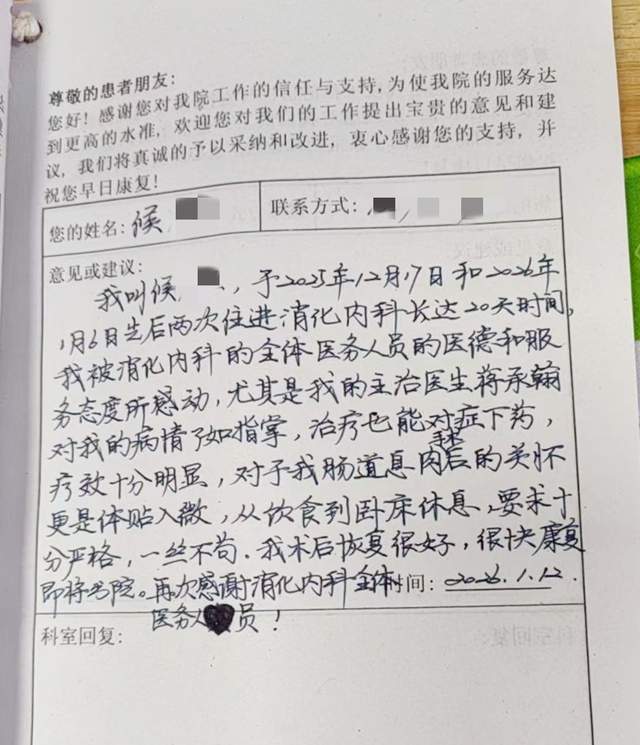 尊敬的患者朋友：
您好！感谢您对我院工作的信任与支持，为使我院的服务达
到更高的水准，欢迎您对我们的工作提出宝贵的意见和建
议，我们将真诚的予以采纳和改进，衷心感谢您的支持，并
祝您早日康复！
您的姓名：候
联系方式：
意见或建议：
我叫候 ，于2025年12月17日和2026年
1月6日先后两次住进消化内科长达20天时间，
我被消化内科的全体医务人员的医德和服
务态度所感动，尤其是我的主治医生蒋承翰
对我的病情了如指掌，治疗也能对症下药，
疗效十分明显，对于我肠道息肉手术后的关怀
更是体贴入微，从饮食到卧床休息，要求十
分严格，一丝不苟．我术后恢复很好，很快康复
即将出院。再次感谢消化内科全体
时间：2026.1.12.
医务人员！
科室回复：